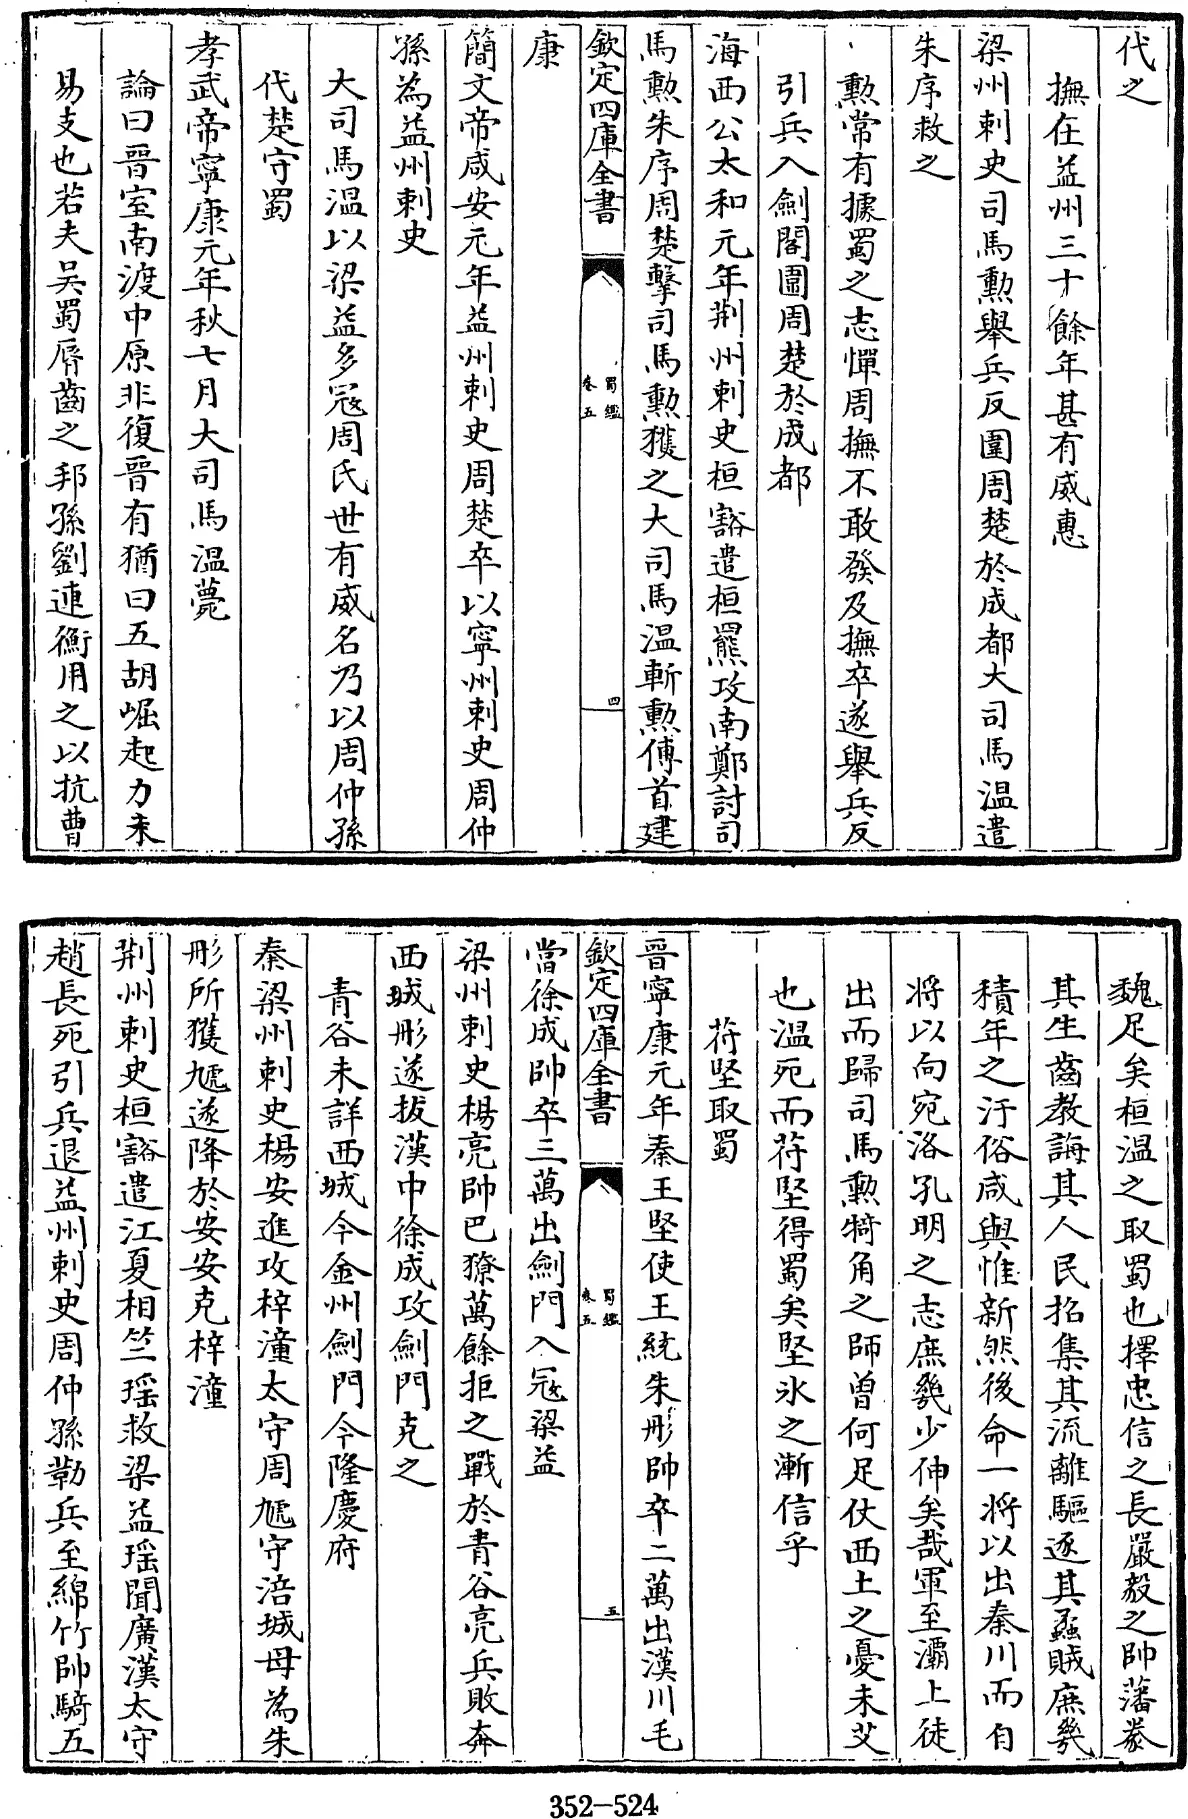 代之
撫在益州三十餘年甚有威惠
梁州刺史司馬勲舉兵反圍周楚於成都大司馬温遣
朱序救之
勲常有據蜀之志憚周撫不敢發及撫卒遂舉兵反
引兵入劍閣圍周楚於成都
海西公太和元年荆州刺史桓豁遣桓羆攻南鄭討司
馬勲朱序周楚擊司馬勲獲之大司馬温斬勲傅首建
欽定四庫全書
蜀鑑
卷五
四
康
簡文帝咸安元年益州刺史周楚卒以寧州刺史周仲
孫為益州刺史
大司馬温以梁益多冦周氏世有威名乃以周仲孫
代楚守蜀
孝武帝寧康元年秋七月大司馬温薨
論曰晉室南渡中原非復晉有猶曰五胡崛起力未
易支也若夫吴蜀脣齒之邦孫劉連衡用之以抗曹
魏足矣桓温之取蜀也擇忠信之長嚴毅之帥藩㳟
其生齒教誨其人民招集其流離驅逐其蟊賊庶幾
積年之汙俗咸與惟新然後命一將以出秦川而自
将以向宛洛孔明之志庶幾少伸矣哉軍至灞上徒
出而歸司馬勲犄角之師曾何足仗西土之憂未艾
也温死而苻堅得蜀矣堅氷之漸信乎
苻堅取蜀
晉寧康元年秦王堅使王統朱彤帥卒二萬出漢川毛
欽定四庫全書
蜀鑑
卷五
五
當徐成帥卒三萬出劍門入冦梁益
梁州刺史楊亮帥巴獠萬餘拒之戰於青谷亮兵敗奔
西城彤遂拔漢中徐成攻劍門克之
青谷未詳西城今金州劍門今隆慶府
秦梁州刺史楊安進攻梓潼太守周虓守涪城母為朱
彤所獲虓遂降於安安克梓潼
荆州刺史桓豁遣江夏相竺瑶救梁益瑶聞廣漢太守
趙長死引兵退益州刺史周仲孫勒兵至綿竹帥騎五
352-524